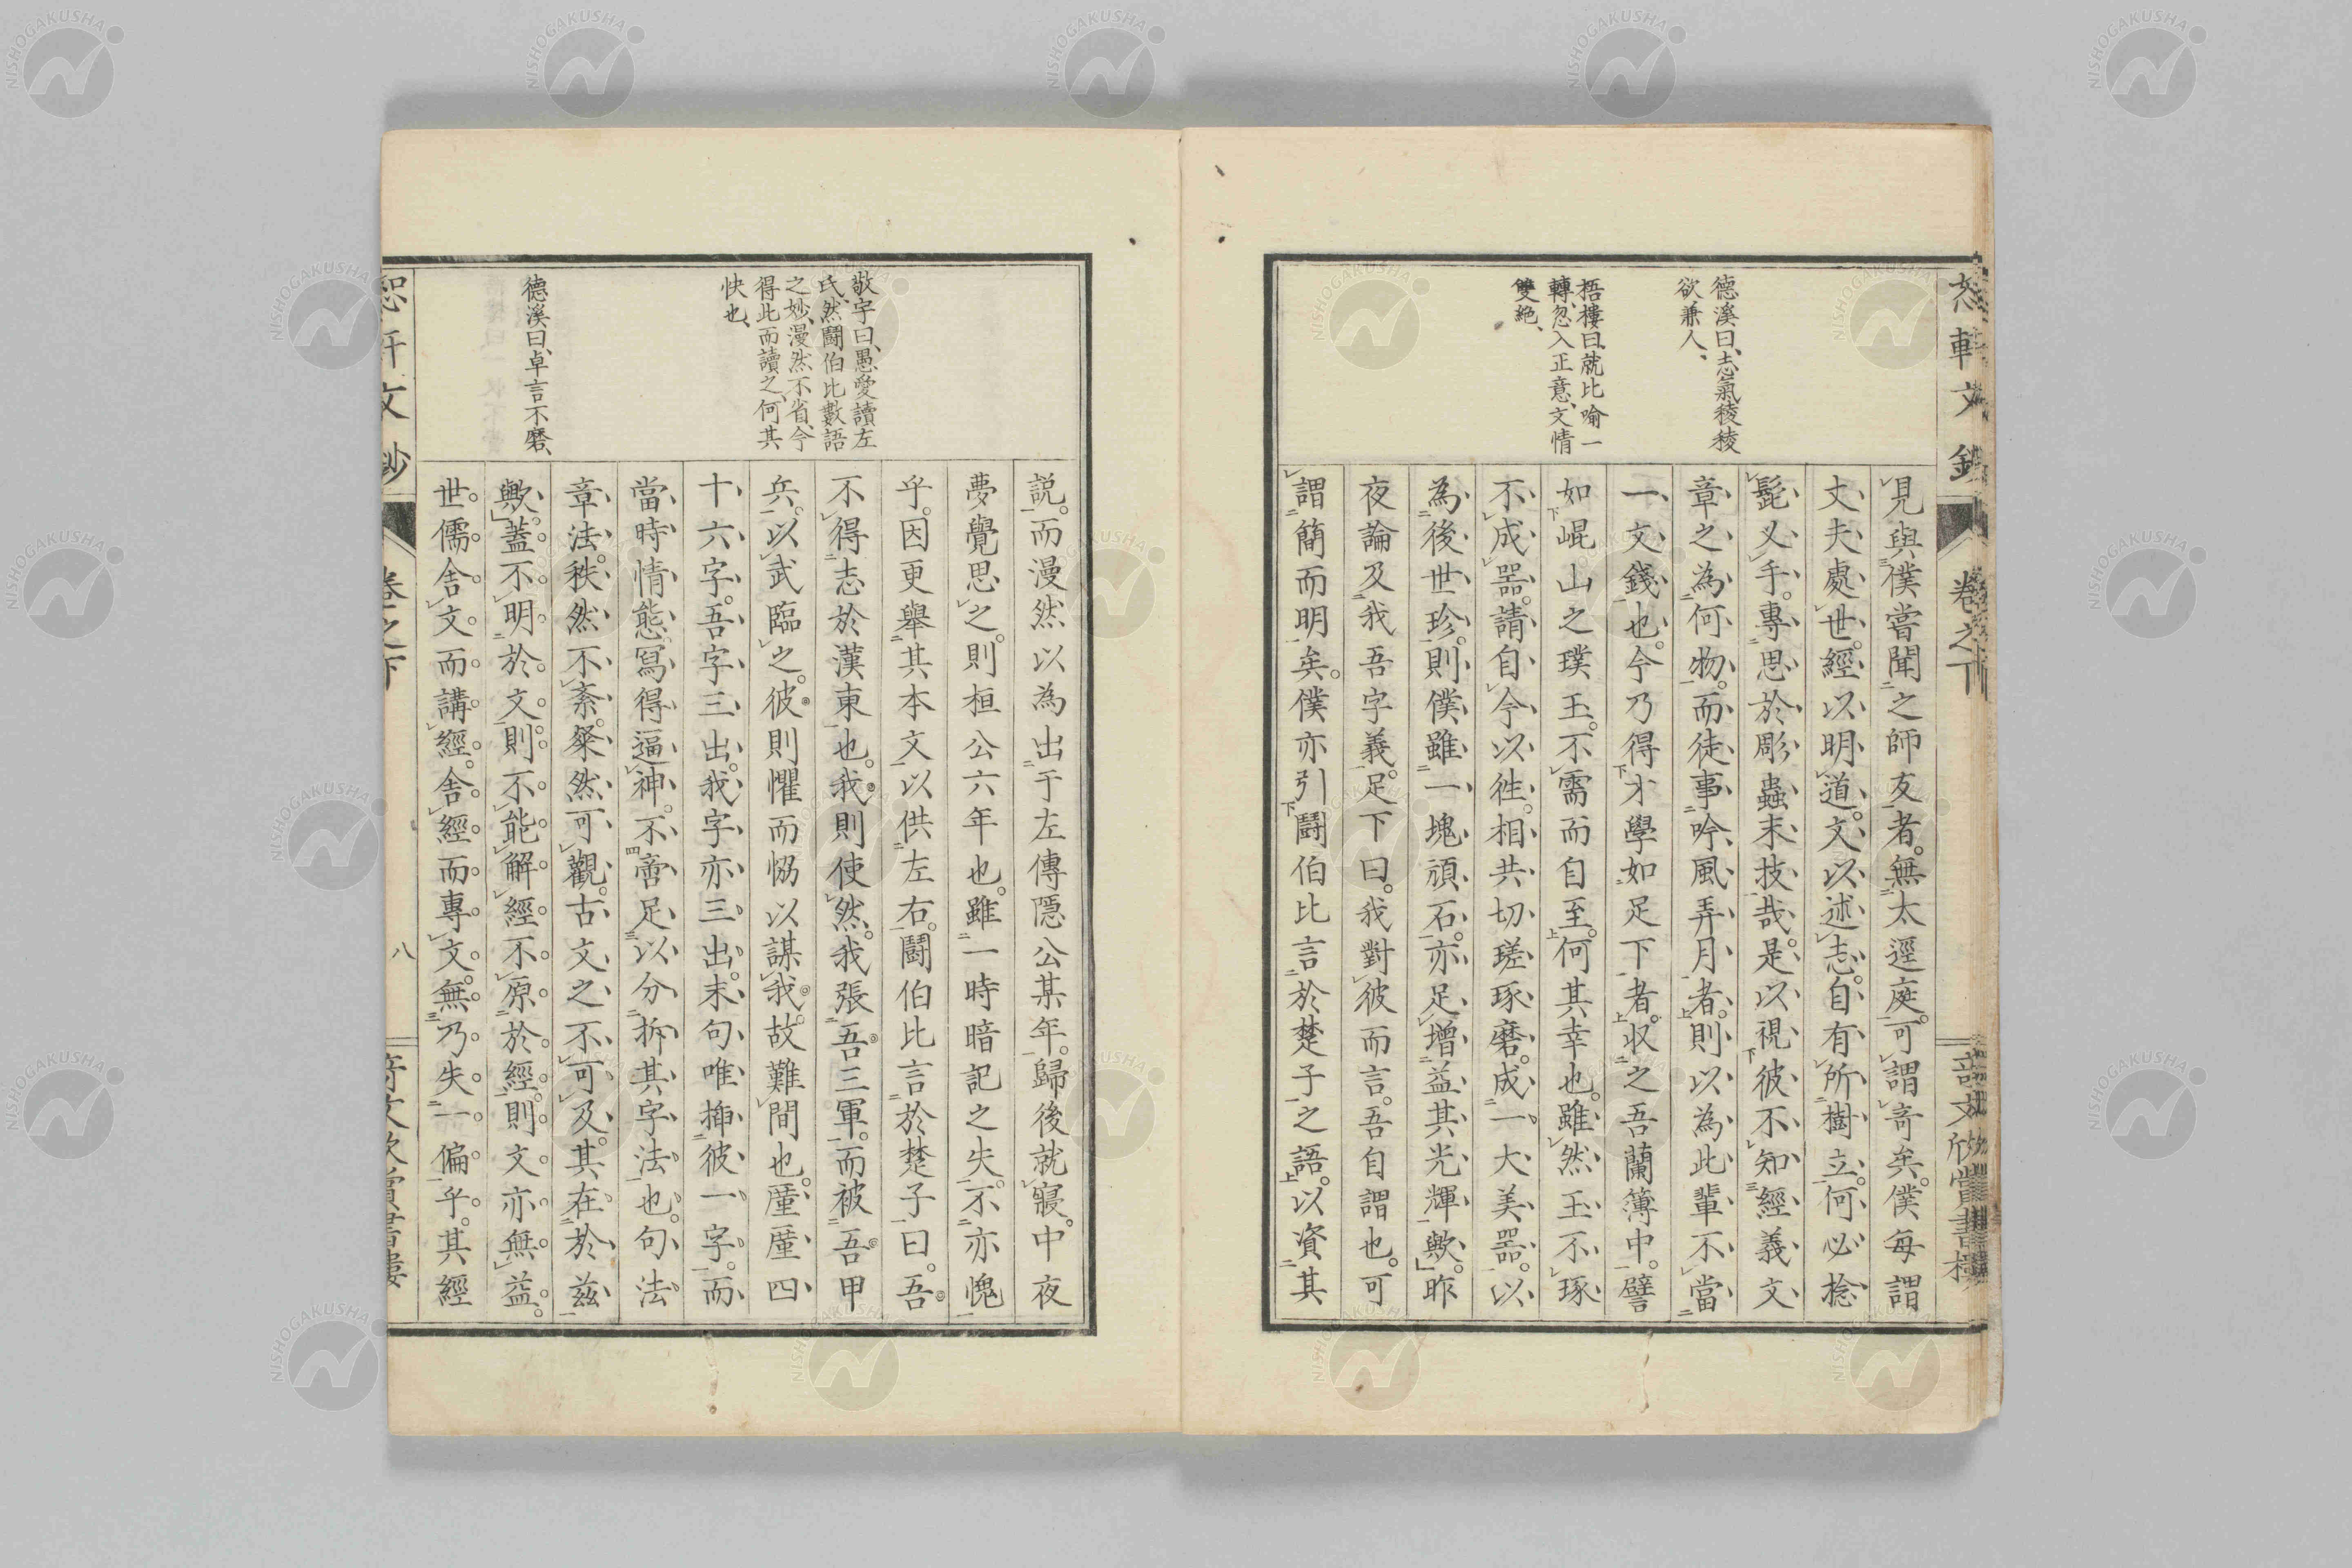 恕軒文鈔
卷之下
奇文欣賞書樓
德溪曰、志氣稜稜
欲兼人、
梧樓曰、就比喻一
轉、忽入正意、文情
雙絶、
見與僕嘗聞之師友者。無太逕庭。可謂奇矣。僕每謂
丈夫處世。經以明道。文以述志。自有所樹立。何必捻
髭叉手。專思於彫蟲末技哉。是以視彼不知經義文
章之為何物。而徒事吟風弄月者。則以為此輩不當
一文錢也。今乃得才學如足下者。収之吾蘭簿中。譬
如崐山之璞玉。不需而自至。何其幸也。雖然玉不琢
不成器。請自今以徃。相共切瑳琢磨。成一大美器。以
為後世珍。則僕雖一塊頑石。亦足增益其光輝歟。昨
夜論及我吾字義。足下曰。我對彼而言。吾自謂也。可
謂簡而明矣。僕亦引鬪伯比言於楚子之語。以資其
敬宇曰、愚愛讀左
氏、然鬪伯比數語
之妙、漫然不省、今
得此而讀之、何其
快也、
德溪曰、卓言不磨、
説。而漫然以為出于左傳隱公某年。歸後就寢。中夜
夢覺思之。則桓公六年也。雖一時暗記之失。不亦愧
乎。因更舉其本文以供左右。鬪伯比言於楚子曰。吾
不得志於漢東也。我則使然。我張吾三軍。而被吾甲
兵。以武臨之。彼則懼而恊以謀我。故難間也。厪厪四
十六字。吾字三出。我字亦三出。末句唯挿彼一字。而
當時情態寫得逼神。不啻足以分拆其字法也。句法
章法。秩然不紊。粲然可觀。古文之不可及。其在於茲
歟。蓋不明於文。則不能解經。不原於經。則文亦無益。
世儒舍文而講經。舍經而專文。無乃失一偏乎。其經
恕軒文鈔
卷之下
八
奇文欣賞書樓
NISHOGAKUSHA